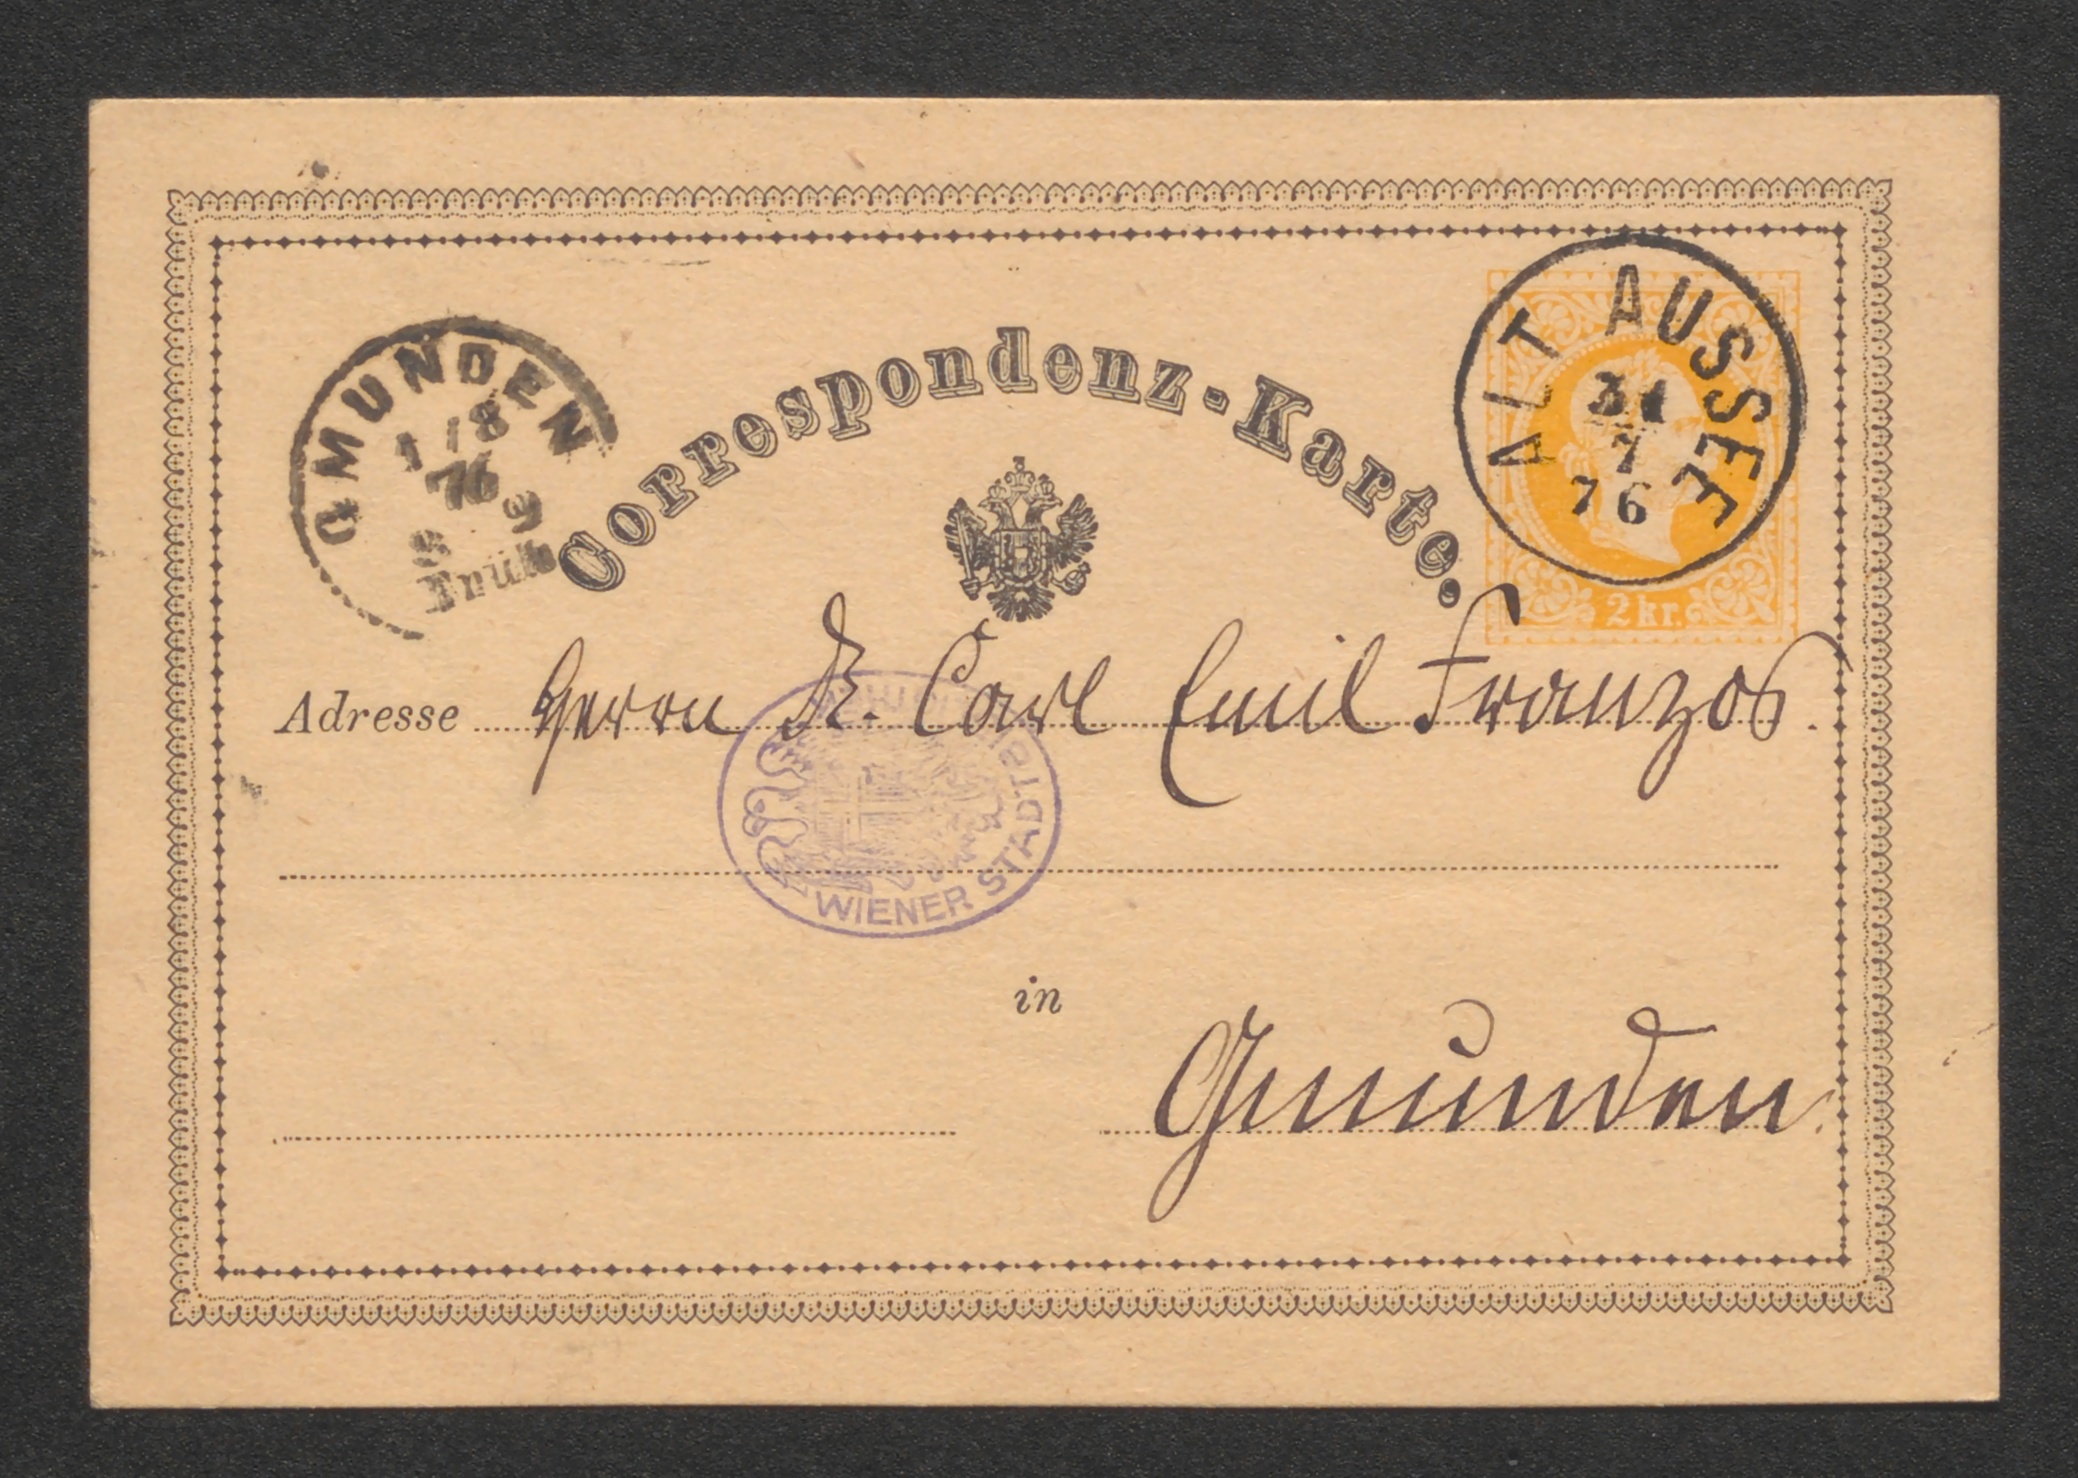 GMUNDEN
1/8
76
8 9
Früh
Correspondenz-Karte.
ALT AUSSEE
31
7
76
2 kr.
Adresse Herrn Carl Emil Franzos.
WIENER STADT
in
Gmunden.